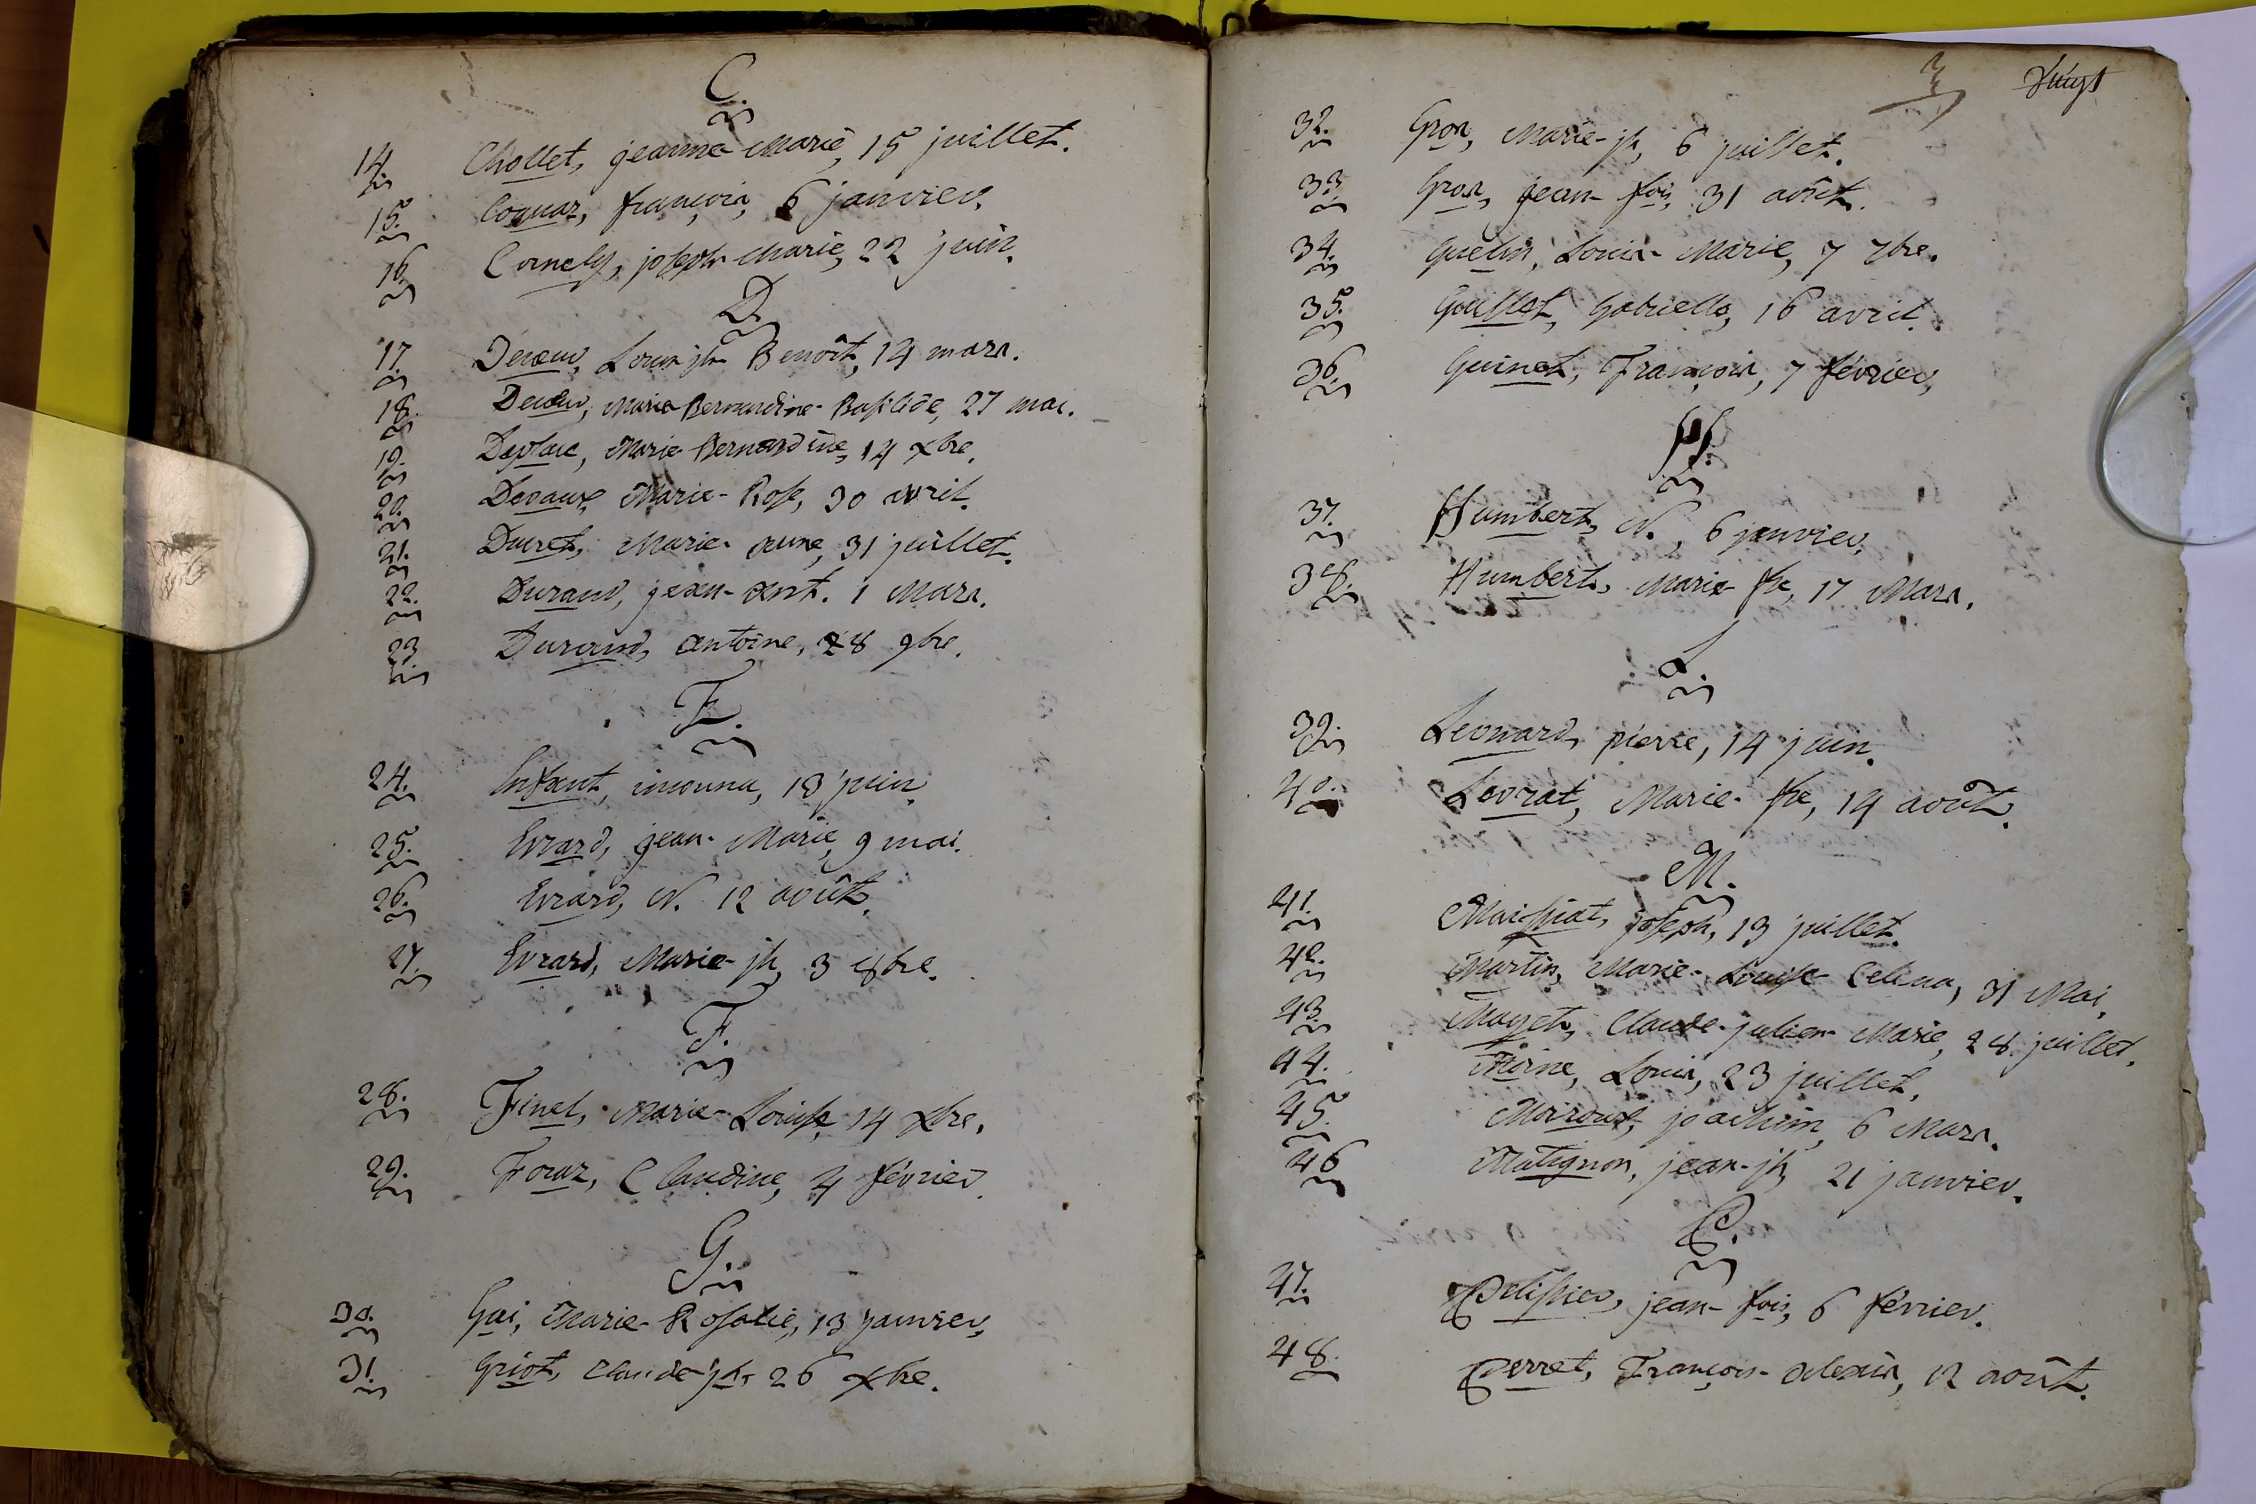 C.
14. Chollet, jeanne Marie, 15 juillet.
15. Coquaz, françois, 6 janvier.
16. Cornely, joseph Marie, 22 juin.
D.
17. Decœur, Louis jh Benoît, 14 mars.
18. Decœur, Marie Bernardine-Basilide, 27 mai.
19. Deplace, Marie Bernardine, 14 xbre.
20. Devaux, Marie-Rose, 30 avril.
21. Duret, Marie-anne, 31 juillet.
22. Durand, jean-ant. 1 Mars.
23. Durand, antoine, 28 9bre.
E.
24. Enfant, inconnu, 13 juin.
25. Evrard, jean-Marie, 9 mai.
26. Evrard, N. 12 août.
27. Evrard, Marie-jh, 3 8bre.
F.
28. Finet, Marie-Louise, 14 xbre.
29. Fouaz, Claudine, 4 février.
G.
30. Gai, Marie-Rosalie, 13 janvier,
31. Griot, Claude-jh, 26 xbre.
3
32. Gros, Marie-jh, 6 juillet.
33. Gros, jean-fois, 31 août.
34. Guelin, Louis-Marie, 7 7bre.
35. Gouillet, Gabrielle, 16 avril.
36. Guinet, François, 7 février,
H.
37. Humbert, N., 6 janvier,
38. Humbert, Marie fse, 17 Mars.
L.
39. Leonard, pierre, 14 juin.
40. Levrat, Marie-fse, 14 août.
M.
41. Maissiat, joseph, 13 juillet.
42. Martin, Marie-Louise Celina, 31 Mai,
43. Mayet, Claude-julien-Marie, 28 juillet,
44. Moine, Louis, 23 juillet,
45. Moiroux, joachim, 6 Mars.
46 Matignon, jean-jh, 21 janvier.
P.
47. Pelissier, jean-fois, 6 février.
48. Perret, François-alexis, 12 août.